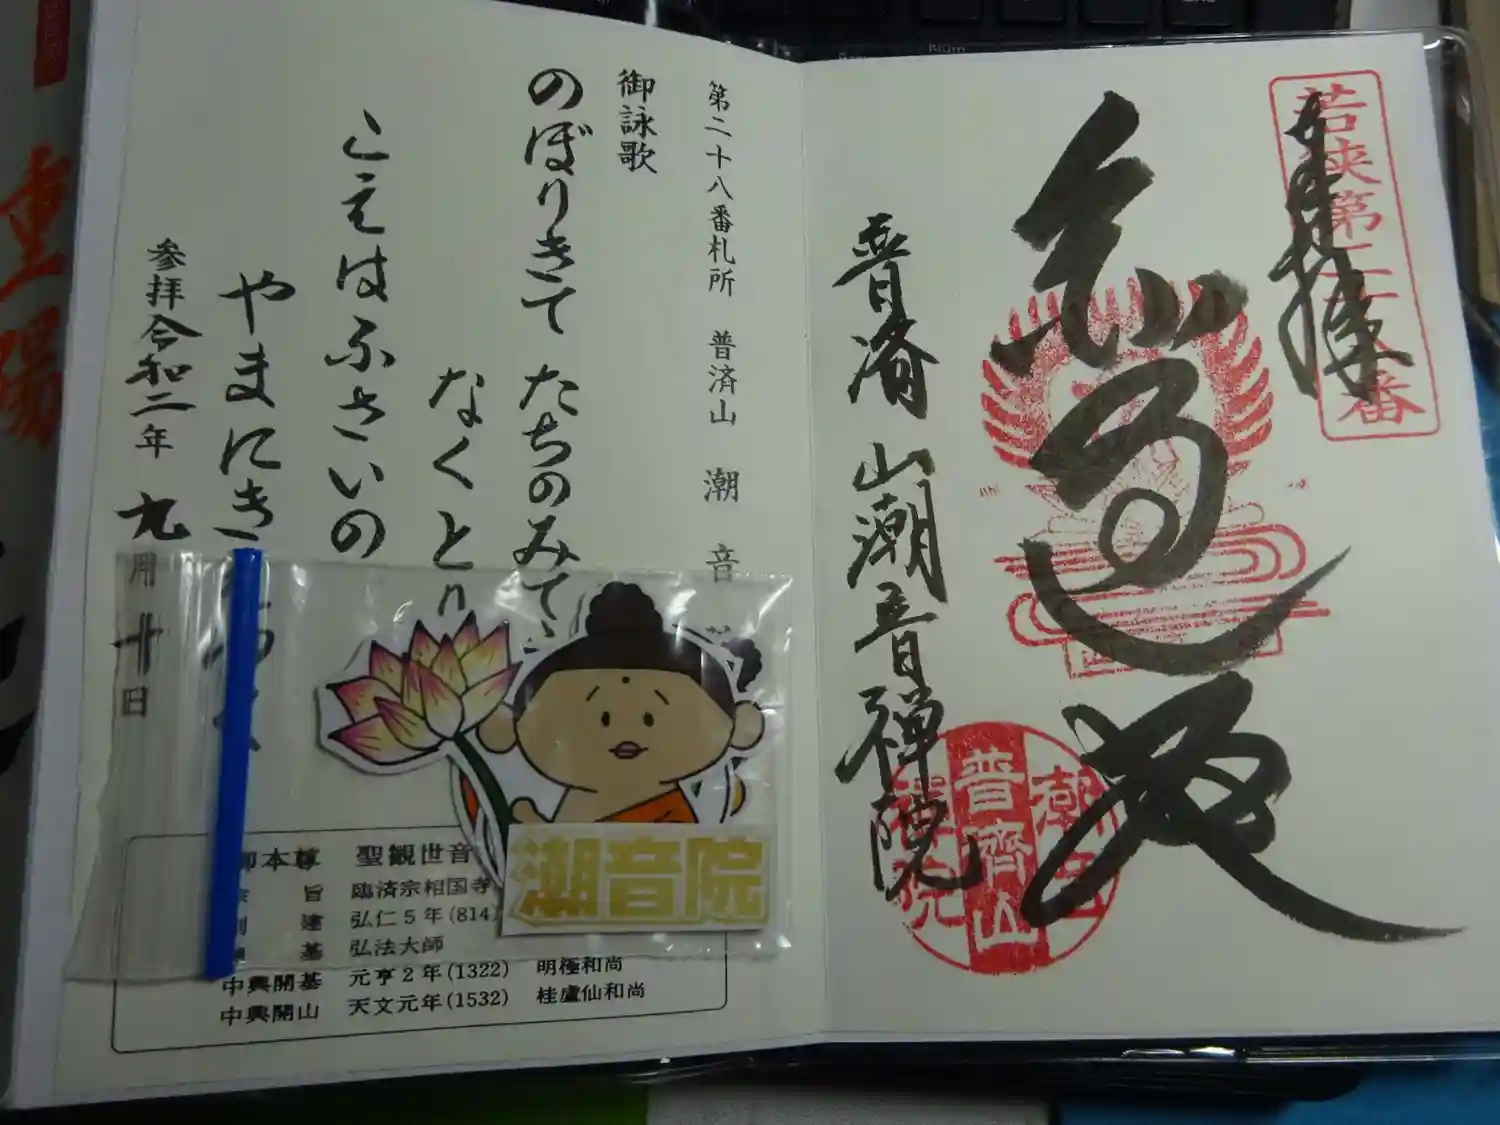 若狭第二十八番
奉拝
普済山潮音禅院
普齊山
潮音
禅院
第二十八番札所 普済山 潮音
御詠歌
のぼりきて たちのみて
なくとり
こえはふさいの
やまにき
参拝令和二年 九月 廿日
御本尊 聖観世音
旨 臨済宗相国寺
建 弘仁5年(814)
基 弘法大師
中興開基 元亨2年(1322) 明極和尚
中興開山 天文元年(1532) 桂盧仙和尚
潮音院
重陽
Num